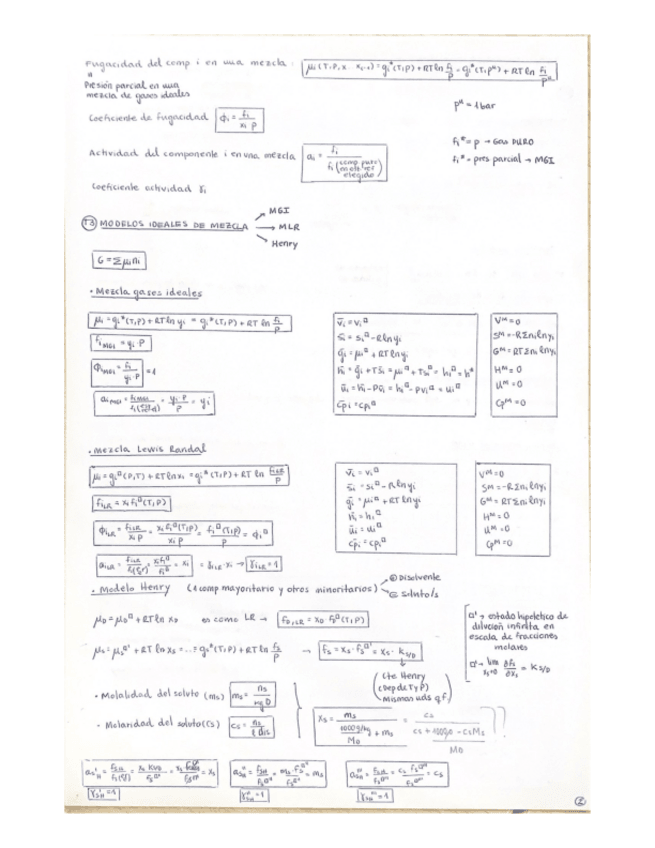 Fugacidad del comp i en una mezcla: μi(T,P,x...xi-1) = gi*(T,P) + RT ln fi/P = gi*(T,pº) + RT ln fi/pº
Presión parcial en una
mezcla de gases ideales
pº = 1 bar
Coeficiente de fugacidad φi = fi / xi P
fi* = P → Gas PURO
fi* = pres parcial → MGI
Actividad del componente i en una mezcla ai = fi / fi (comp puro
elegido)
Coeficiente actividad γi
T3 MODELOS IDEALES DE MEZCLA → MGI
→ MLR
→ Henry
G = Σ μi ni
• Mezcla gases ideales
μi = gi*(T,P) + RT ln yi = gi*(T,P) + RT ln fi/P
fi MGI = yi · P
φi MGI = fi / yi·P = 1
ai MGI = yi·P / P = yi
V̄i = Vi□
S̄i = Si□ - R ln yi
ḡi = μi□ + RT ln yi
H̄i = ḡi + TS̄i = μi□ + TSi□ = hi□ = h*
ūi = H̄i - PV̄i = hi□ - PVi□ = ui□
c̄pi = cpi□
Vᴹ = 0
Sᴹ = -RΣni ln yi
Gᴹ = RTΣni ln yi
Hᴹ = 0
Uᴹ = 0
Cpᴹ = 0
• mezcla Lewis Randal
μi = gi□(P,T) + RT ln xi = gi*(T,P) + RT ln fiLR/P
fiLR = xi fi□(T,P)
φiLR = fiLR / xi P = xi fi□(T,P) / xi P = fi□(T,P) / P = φi□
aiLR = xi fi□ / fi□ = xi = γiLR · xi → γiLR = 1
V̄i = Vi□
S̄i = Si□ - R ln yi
ḡi = μi□ + RT ln yi
H̄i = hi□
ūi = ui□
c̄pi = cpi□
Vᴹ = 0
Sᴹ = -RΣni ln yi
Gᴹ = RTΣni ln yi
Hᴹ = 0
Uᴹ = 0
Cpᴹ = 0
• Modelo Henry (1 comp mayoritario y otros minoritarios) → Disolvente
→ Soluto/s
μD = μD□ + RT ln xD es como LR → fD,LR = xD · fD□(T,P)
μs = μs□' + RT ln xs = ... = gs*(T,P) + RT ln fs/P → fs = xs · fs□' = xs · Ks/D
Cte Henry
(Dep de T y P)
mismas uds q f
□' → estado hipotético de
dilución infinita en
escala de fracciones
molares
□' → lim xs→0 ∂fs/∂xs = Ks/D
• Molalidad del soluto (ms) ms = ns / mD
• Molaridad del soluto (cs) cs = ns / l dis
xs = ms / (1000g/kg / MD + ms) = cs / (cs + 1000ρ - csMs / MD) ??
γsH' = 1
γsH'' = 1
γsH''' = 1
2